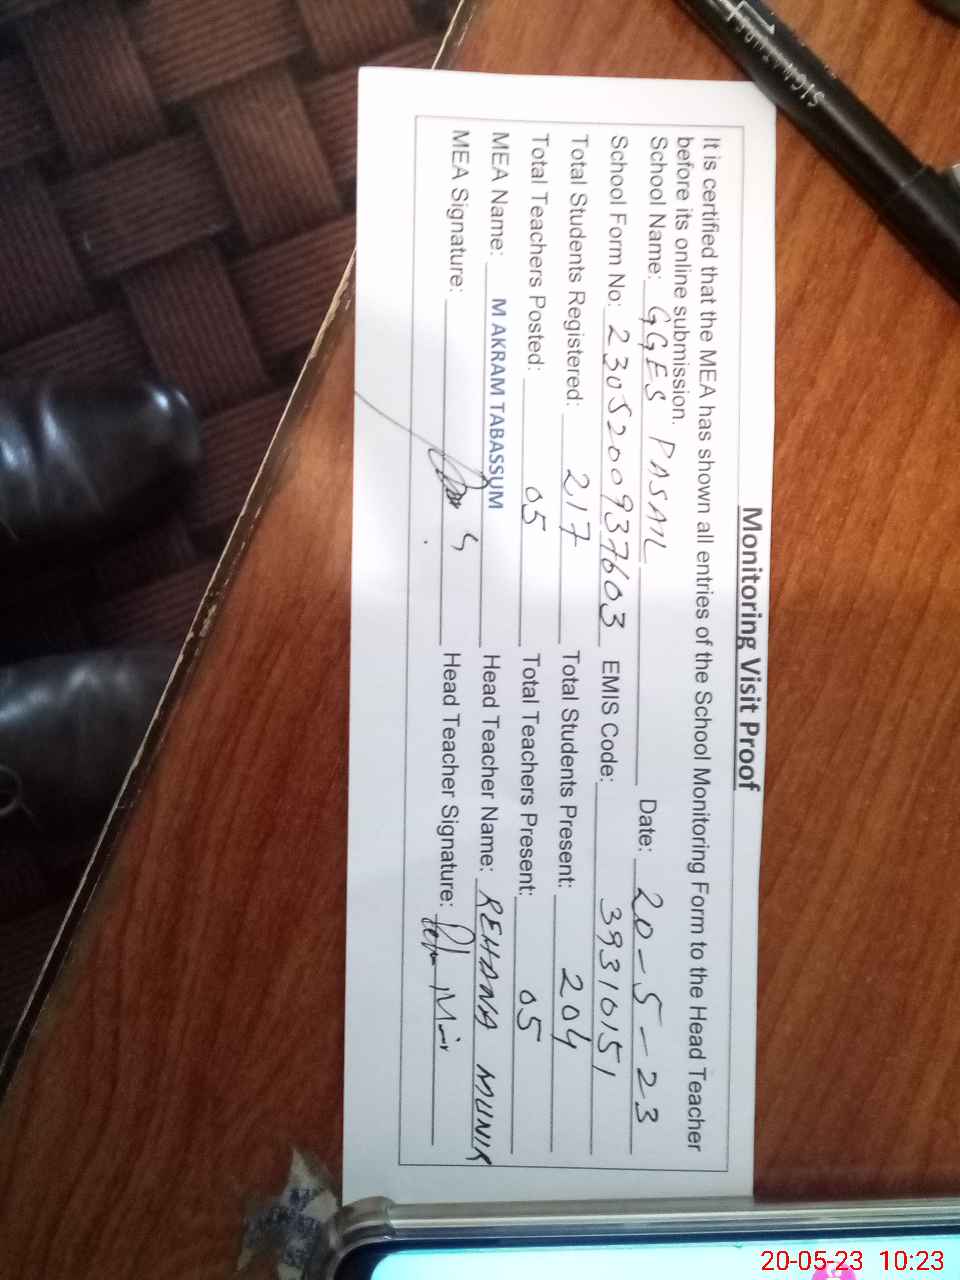 Monitoring Visit Proof
It is certified that the MEA has shown all entries of the School Monitoring Form to the Head Teacher
before its online submission.
School Name: GGES PASAIL Date: 20-5-23
School Form No: 2305200937603 EMIS Code: 39310151
Total Students Registered: 217 Total Students Present: 204
Total Teachers Posted: 05 Total Teachers Present: 05
MEA Name: M AKRAM TABASSUM Head Teacher Name: REHANA MUNIR
MEA Signature: Head Teacher Signature:
20-05-23 10:23